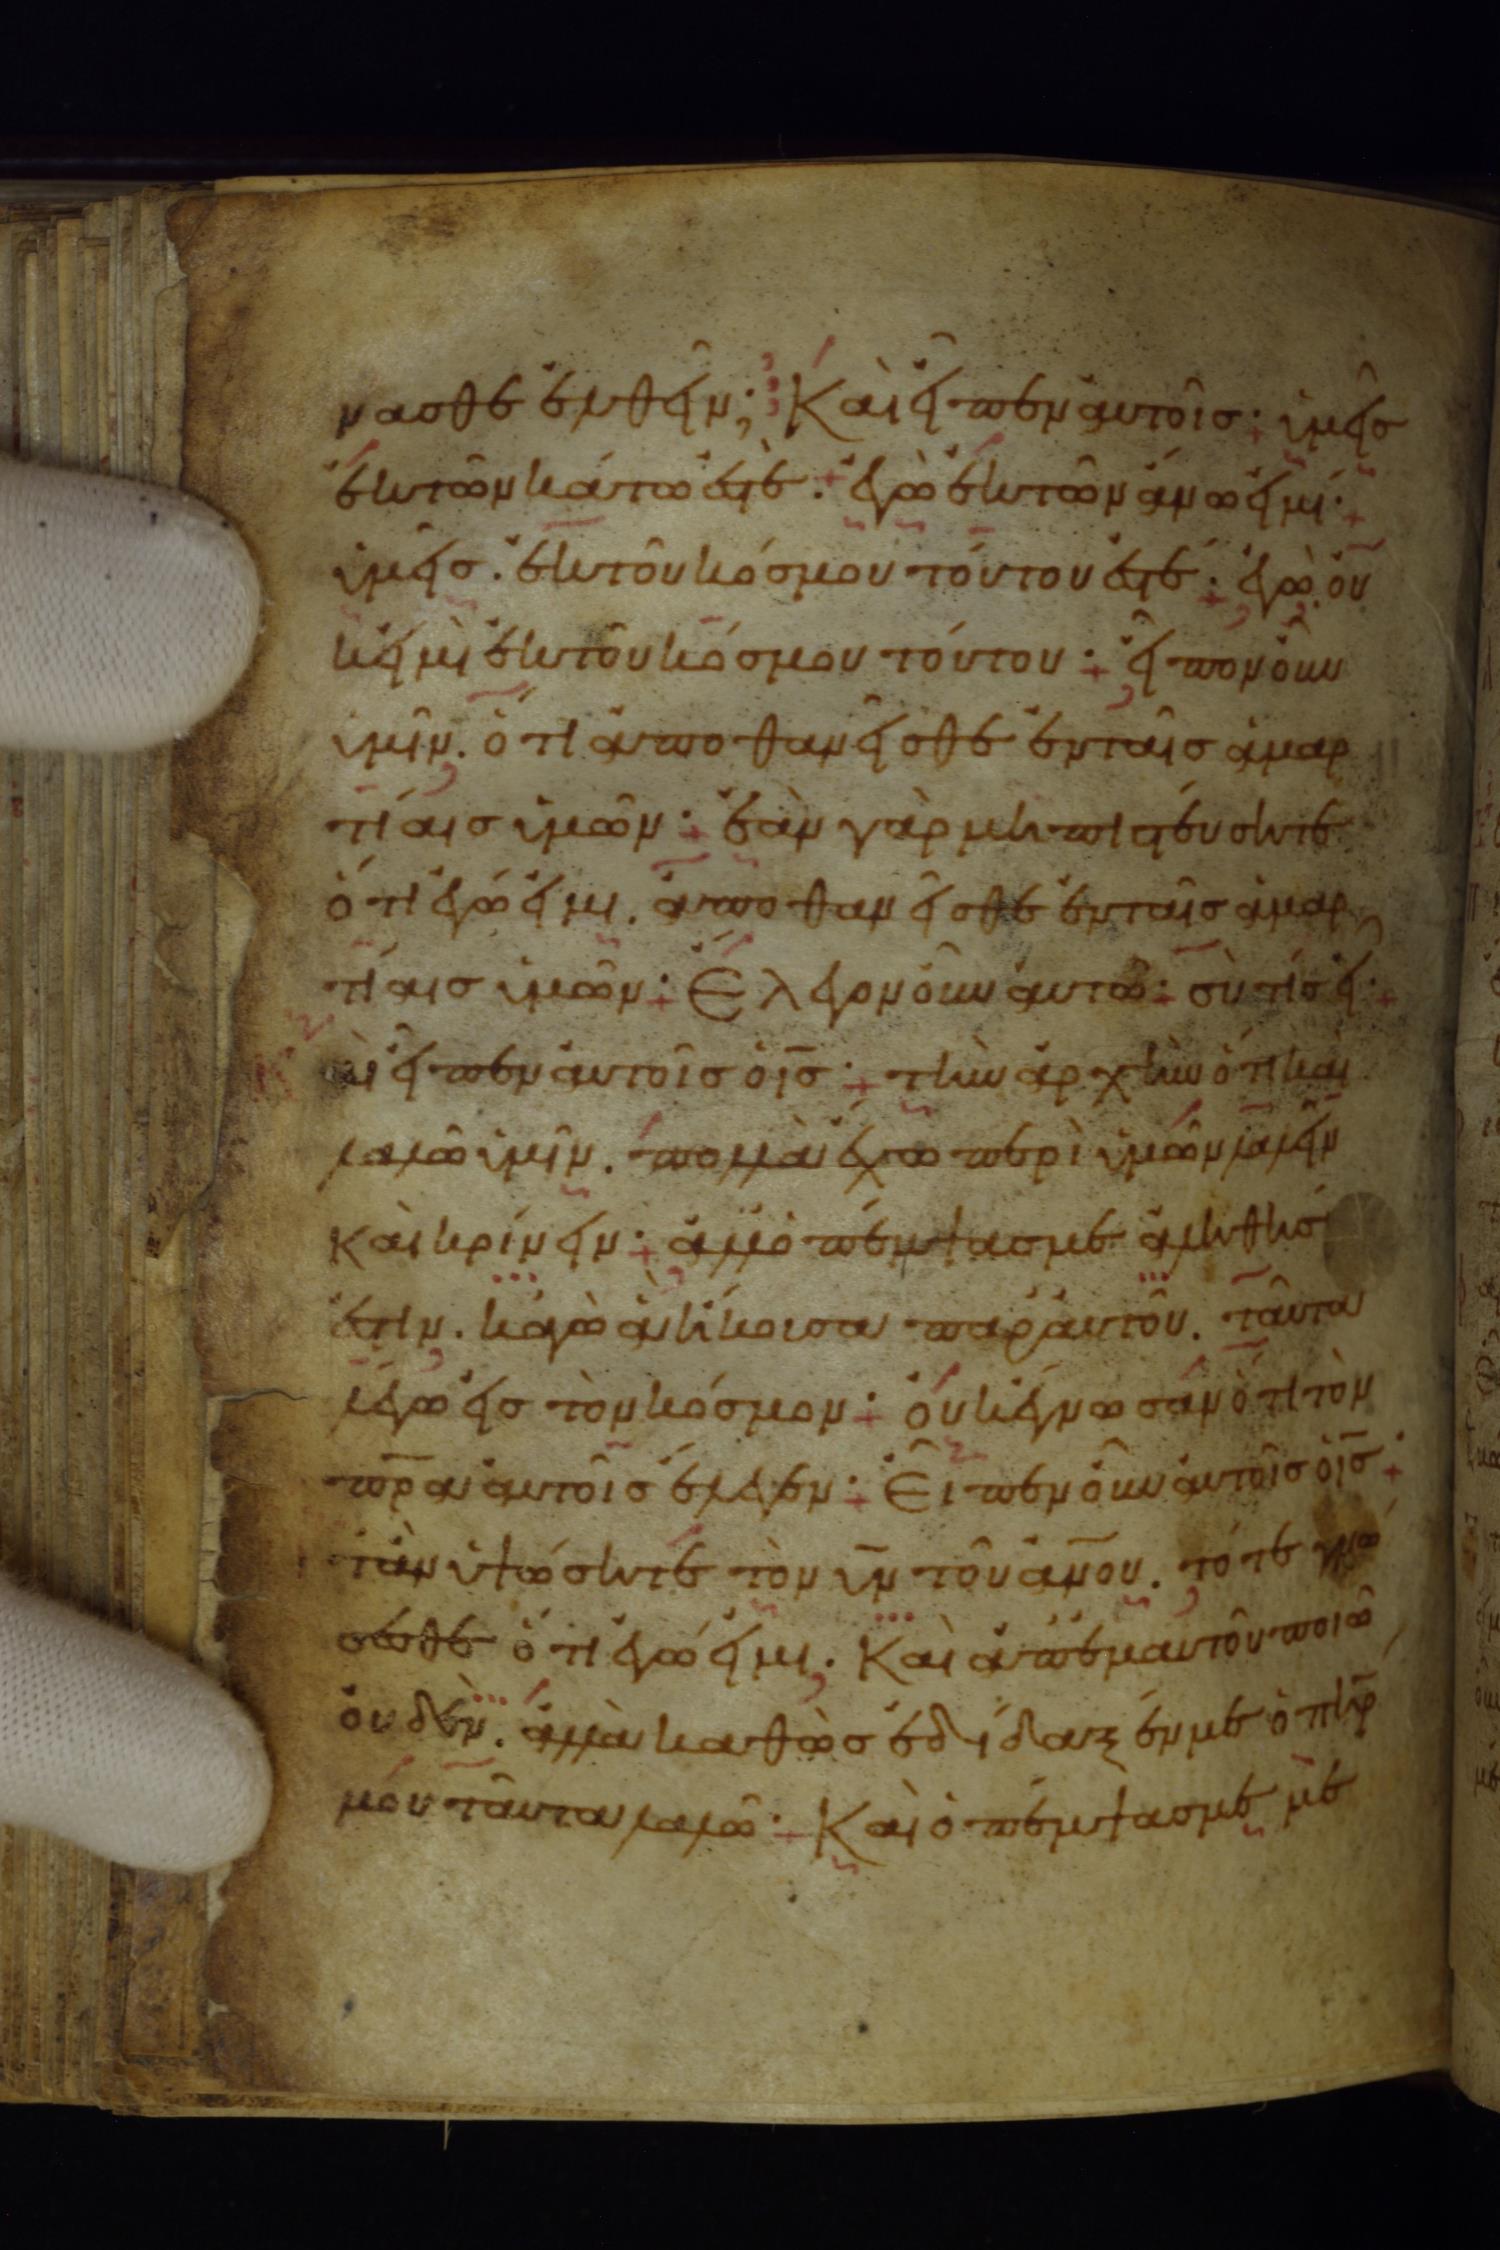 νασθε ἐλθεῖν; Καὶ εἶπεν αὐτοῖς· ὑμεῖς
ἐκ τῶν κάτω ἐστὲ. ἐγὼ ἐκ τῶν ἄνω εἰμί·
ὑμεῖς. ἐκ τοῦ κόσμου τούτου ἐστέ· ἐγὼ οὐ
κ εἰμὶ ἐκ τοῦ κόσμου τούτου· εἶπον οὖν
ὑμῖν. ὅτι ἀποθανεῖσθε ἐν ταῖς ἁμαρ
τίαις ὑμῶν· ἐὰν γὰρ μὴ πιστεύσητε
ὅτι ἐγώ εἰμι. ἀποθανεῖσθε ἐν ταῖς ἁμαρ
τίαις ὑμῶν· Ἔλεγον οὖν αὐτῶ· σὺ τίς εἶ·
αὶ εἶπεν αὐτοῖς ὁ ις· τὴν ἀρχὴν ὅτι καὶ
λαλῶ ὑμῖν. πολλὰ ἔχω περὶ ὑμῶν λαλεῖν
καὶ κρίνειν· ἀλλ' ὁ πέμψας με ἀληθής
ἐστιν. κἀγὼ ἃ ἤκουσα παρ' αὐτοῦ. ταῦτα
λέγω εἰς τὸν κόσμον· οὐκ ἔγνωσαν ὅτι τὸν
πρα αὐτοῖς ἔλεγεν· Εἶπεν οὖν αὐτοῖς ὁ ις·
τὰν ὑψώσητε τὸν υν τοῦ ανου. τότε γνώ
σεσθε ὅτι ἐγώ εἰμι. Καὶ ἀπ' ἐμαυτοῦ ποιῶ
οὐδὲν. ἀλλὰ καθὼς ἐδίδαξέν με ὁ πηρ
μου ταῦτα λαλῶ· Καὶ ὁ πέμψας με με